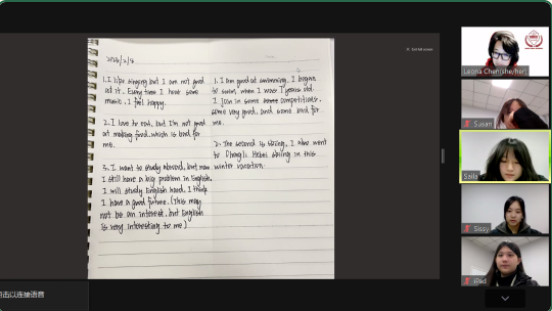 1. I like singing but I am not good
at it. Every time I hear some
music, I feel happy.
2. I love to eat, but I'm not good
at making food, which is bad for
me.
3. I want to study abroad, but now
I still have a big problem in English.
I will study English hard, I think
I have a good future. (This may
not be an interest, but English
is very interesting to me)
1. I am good at swimming. I begine
to swim, when I was 7 years old.
I join in some competitions,
some very good, and some bad for
me.
2. The second is skiing, I also went
to skiing in this
winter vacation.
Leona Chen(she/her)
Susan
Sissy
击以连接语音